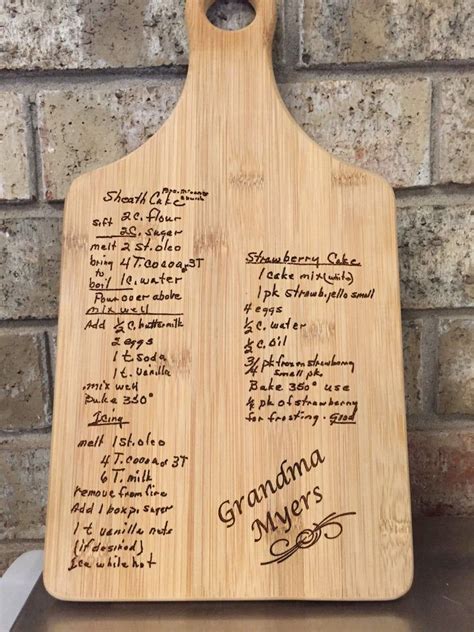 Sheath Cake
sift 2c. flour
2C. sugar
melt 2 st. oleo
bring 4 T. cocoa or 3T
to
boil 1c. water
Pour over above
mix well
Add ½ c. buttermilk
2 eggs
1 t soda
1 t. vanilla
mix well
Bake 350°
Icing
melt 1 st. oleo
4 T. cocoa or 3T
6 T. milk
remove from fire
Add 1 box p. sugar
1 t vanilla nuts
(if desired)
Ice while hot
Strawberry Cake
1 cake mix (white)
1 pk strawb. jello small
4 eggs
½ c. water
½ c. oil
¾ pk frozen strawberry
small pk.
Bake 350° use
¼ pk of strawberry
for frosting. Good
Grandma
Myers